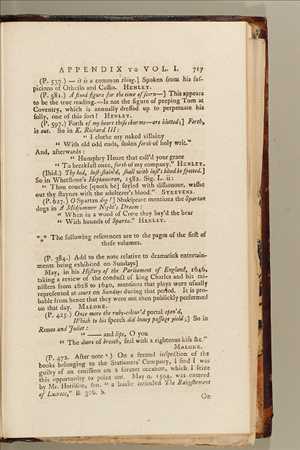 APPENDIX TO VOL. I. 717
(P. 537.) — it is a common thing.] Spoken from his suf-
picions of Othello and Cassio. HENLEY.
(P. 581.) A fixed figure for the time of scorn—] This appears
to be the true reading.—Is not the figure of peeping Tom at
Coventry, which is annually dressed up to perpetuate his
folly, one of this sort? HENLEY.
(P. 597.) Forth of my heart those charms—are blotted;] Forth,
is out. So in K. Richard III:
" I clothe my naked villainy
" With old odd ends, stolen forth of holy writ."
And, afterwards:
" Humphry Houre that call'd your grace
" To breakfast once, forth of my company." HENLEY.
(Ibid.) Thy bed, lust-stain'd, shall with lust's blood be spotted.]
So in Whetstone's Heptameron, 1582. Sig. L. ii:
" Thou couche [quoth he] soyled with dishonour, washe
out thy staynes with the adulterer's blood." STEEVENS.
(P. 627.) O Spartan dog!] Shakspeare mentions the Spartan
dogs in A Midsummer Night's Dream:
" When in a wood of Crete they bay'd the bear
" With hounds of Sparta." HENLEY.
*** The following references are to the pages of the first of
these volumes.
(P. 384.) Add to the note relative to dramatick entertain-
ments being exhibited on Sundays]
May, in his History of the Parliament of England, 1646,
taking a review of the conduct of king Charles and his mi-
nisters from 1628 to 1640, mentions that plays were usually
represented at court on Sundays during that period. It is pro-
bable from hence that they were not then publickly performed
on that day. MALONE.
(P. 425.) Once more the ruby-colour'd portal open'd,
Which to his speech did honey passage yield;] So in
Romeo and Juliet:
" —— and lips, O you
" The doors of breath, seal with a righteous kiss &c."
MALONE.
(P. 472. After note .) On a second inspection of the
books belonging to the Stationers' Company, I find I was
guilty of an omission on a former occasion, which I seize
this opportunity to point out. May 9. 1594. was entered
by Mr. Harrison, sen. " a booke intituled The Ravyshement
of Lucrece," B. 306. b.
On